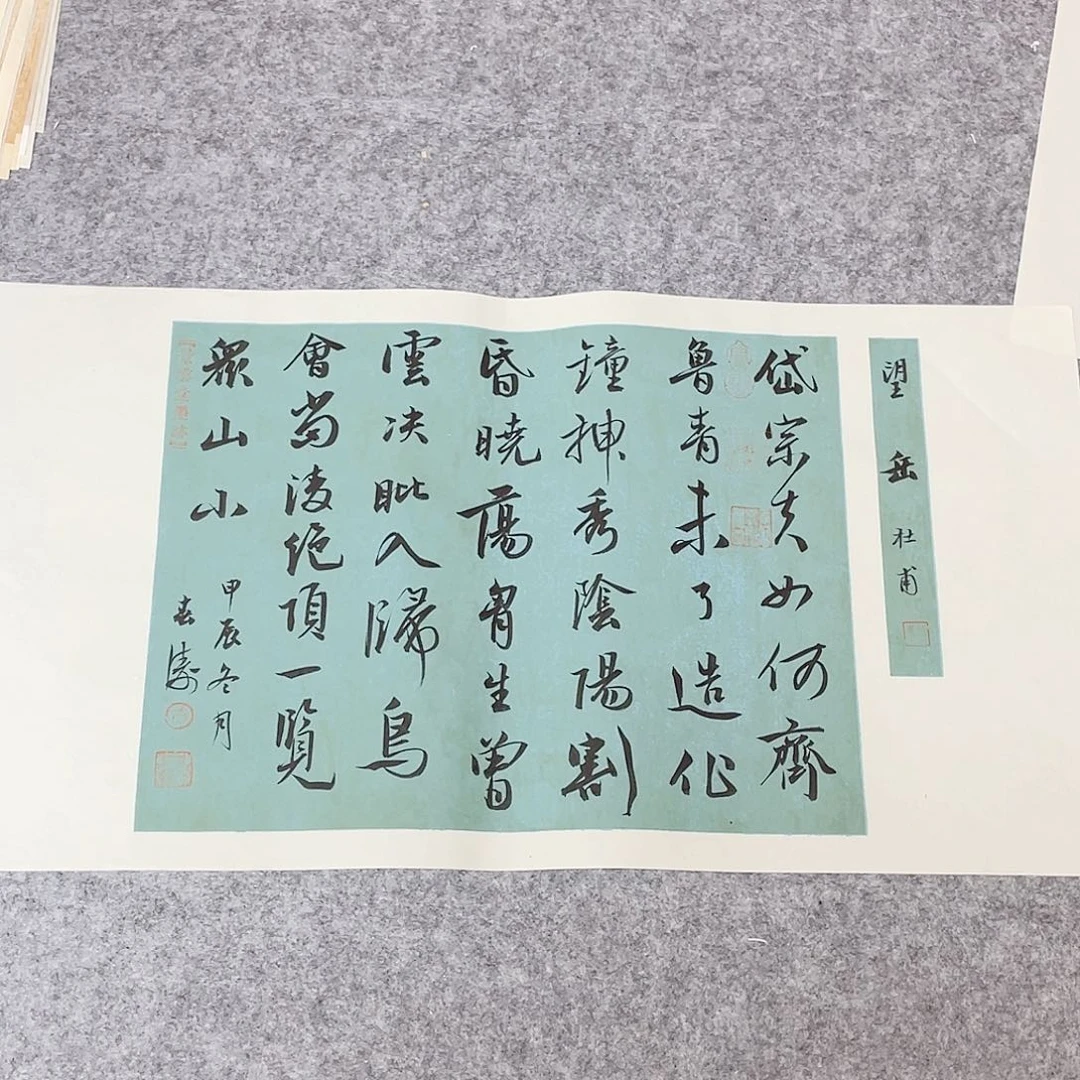 望岳 杜甫
岱宗夫如何齊
魯青未了造化
鐘神秀陰陽割
昏曉蕩胷生曾
雲决眦入歸鳥
會當淩絕頂一覽
眾山小
甲辰冬月
春濤